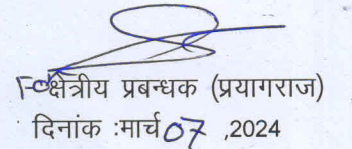 क्षेत्रीय प्रबन्धक (प्रयागराज)
दिनांक :मार्च 07 ,2024